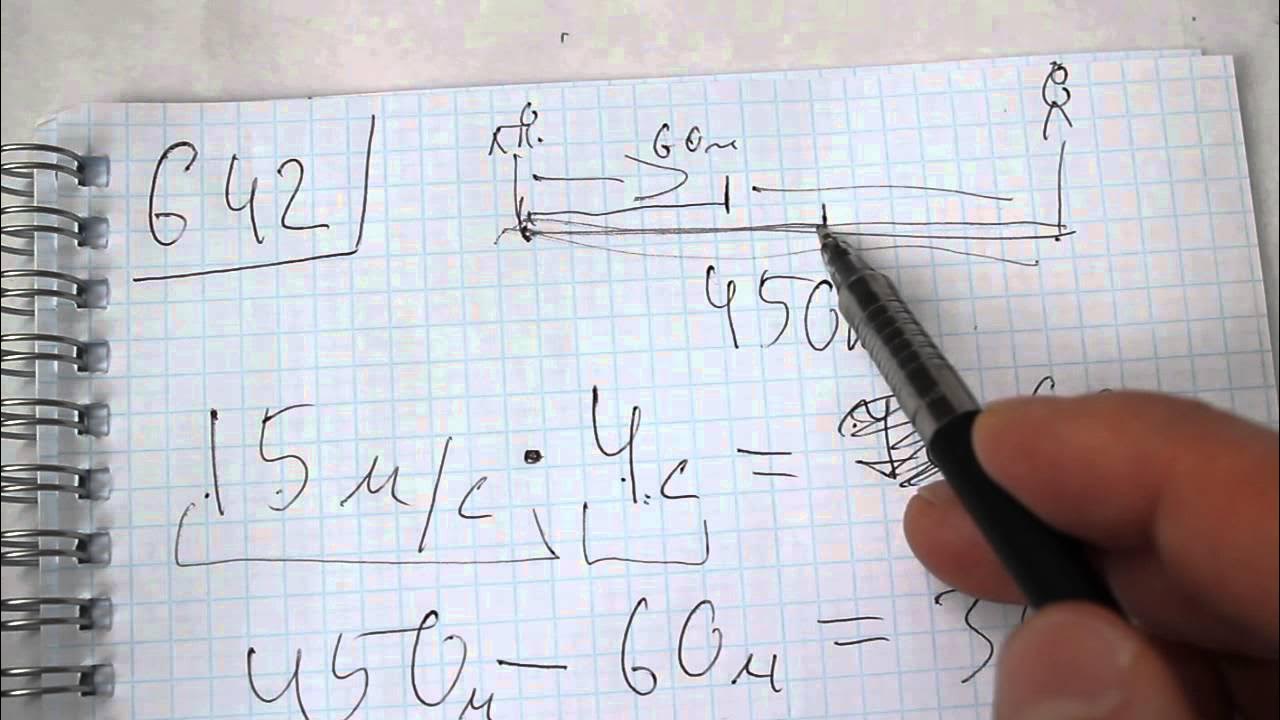 642
60м
450
15м/с · 4с =
450м - 60м = 3